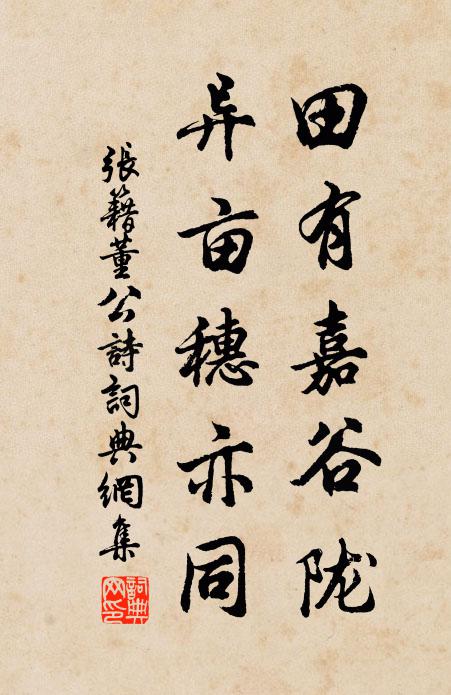 田有嘉谷陇
异亩穗亦同
張籍董公詩詞典網集
詞典網印